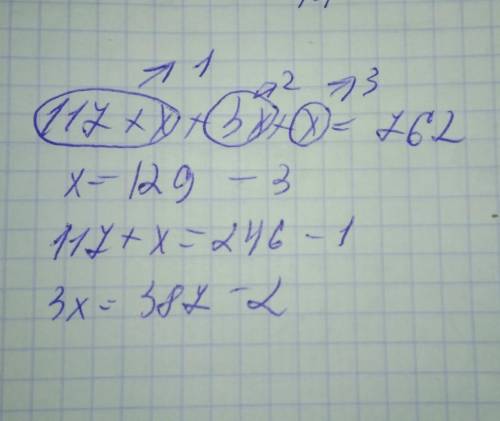 →1 →2 →3
117 + x + 3x + x = 762
x = 129 - 3
117 + x = 246 - 1
3x = 387 - 2